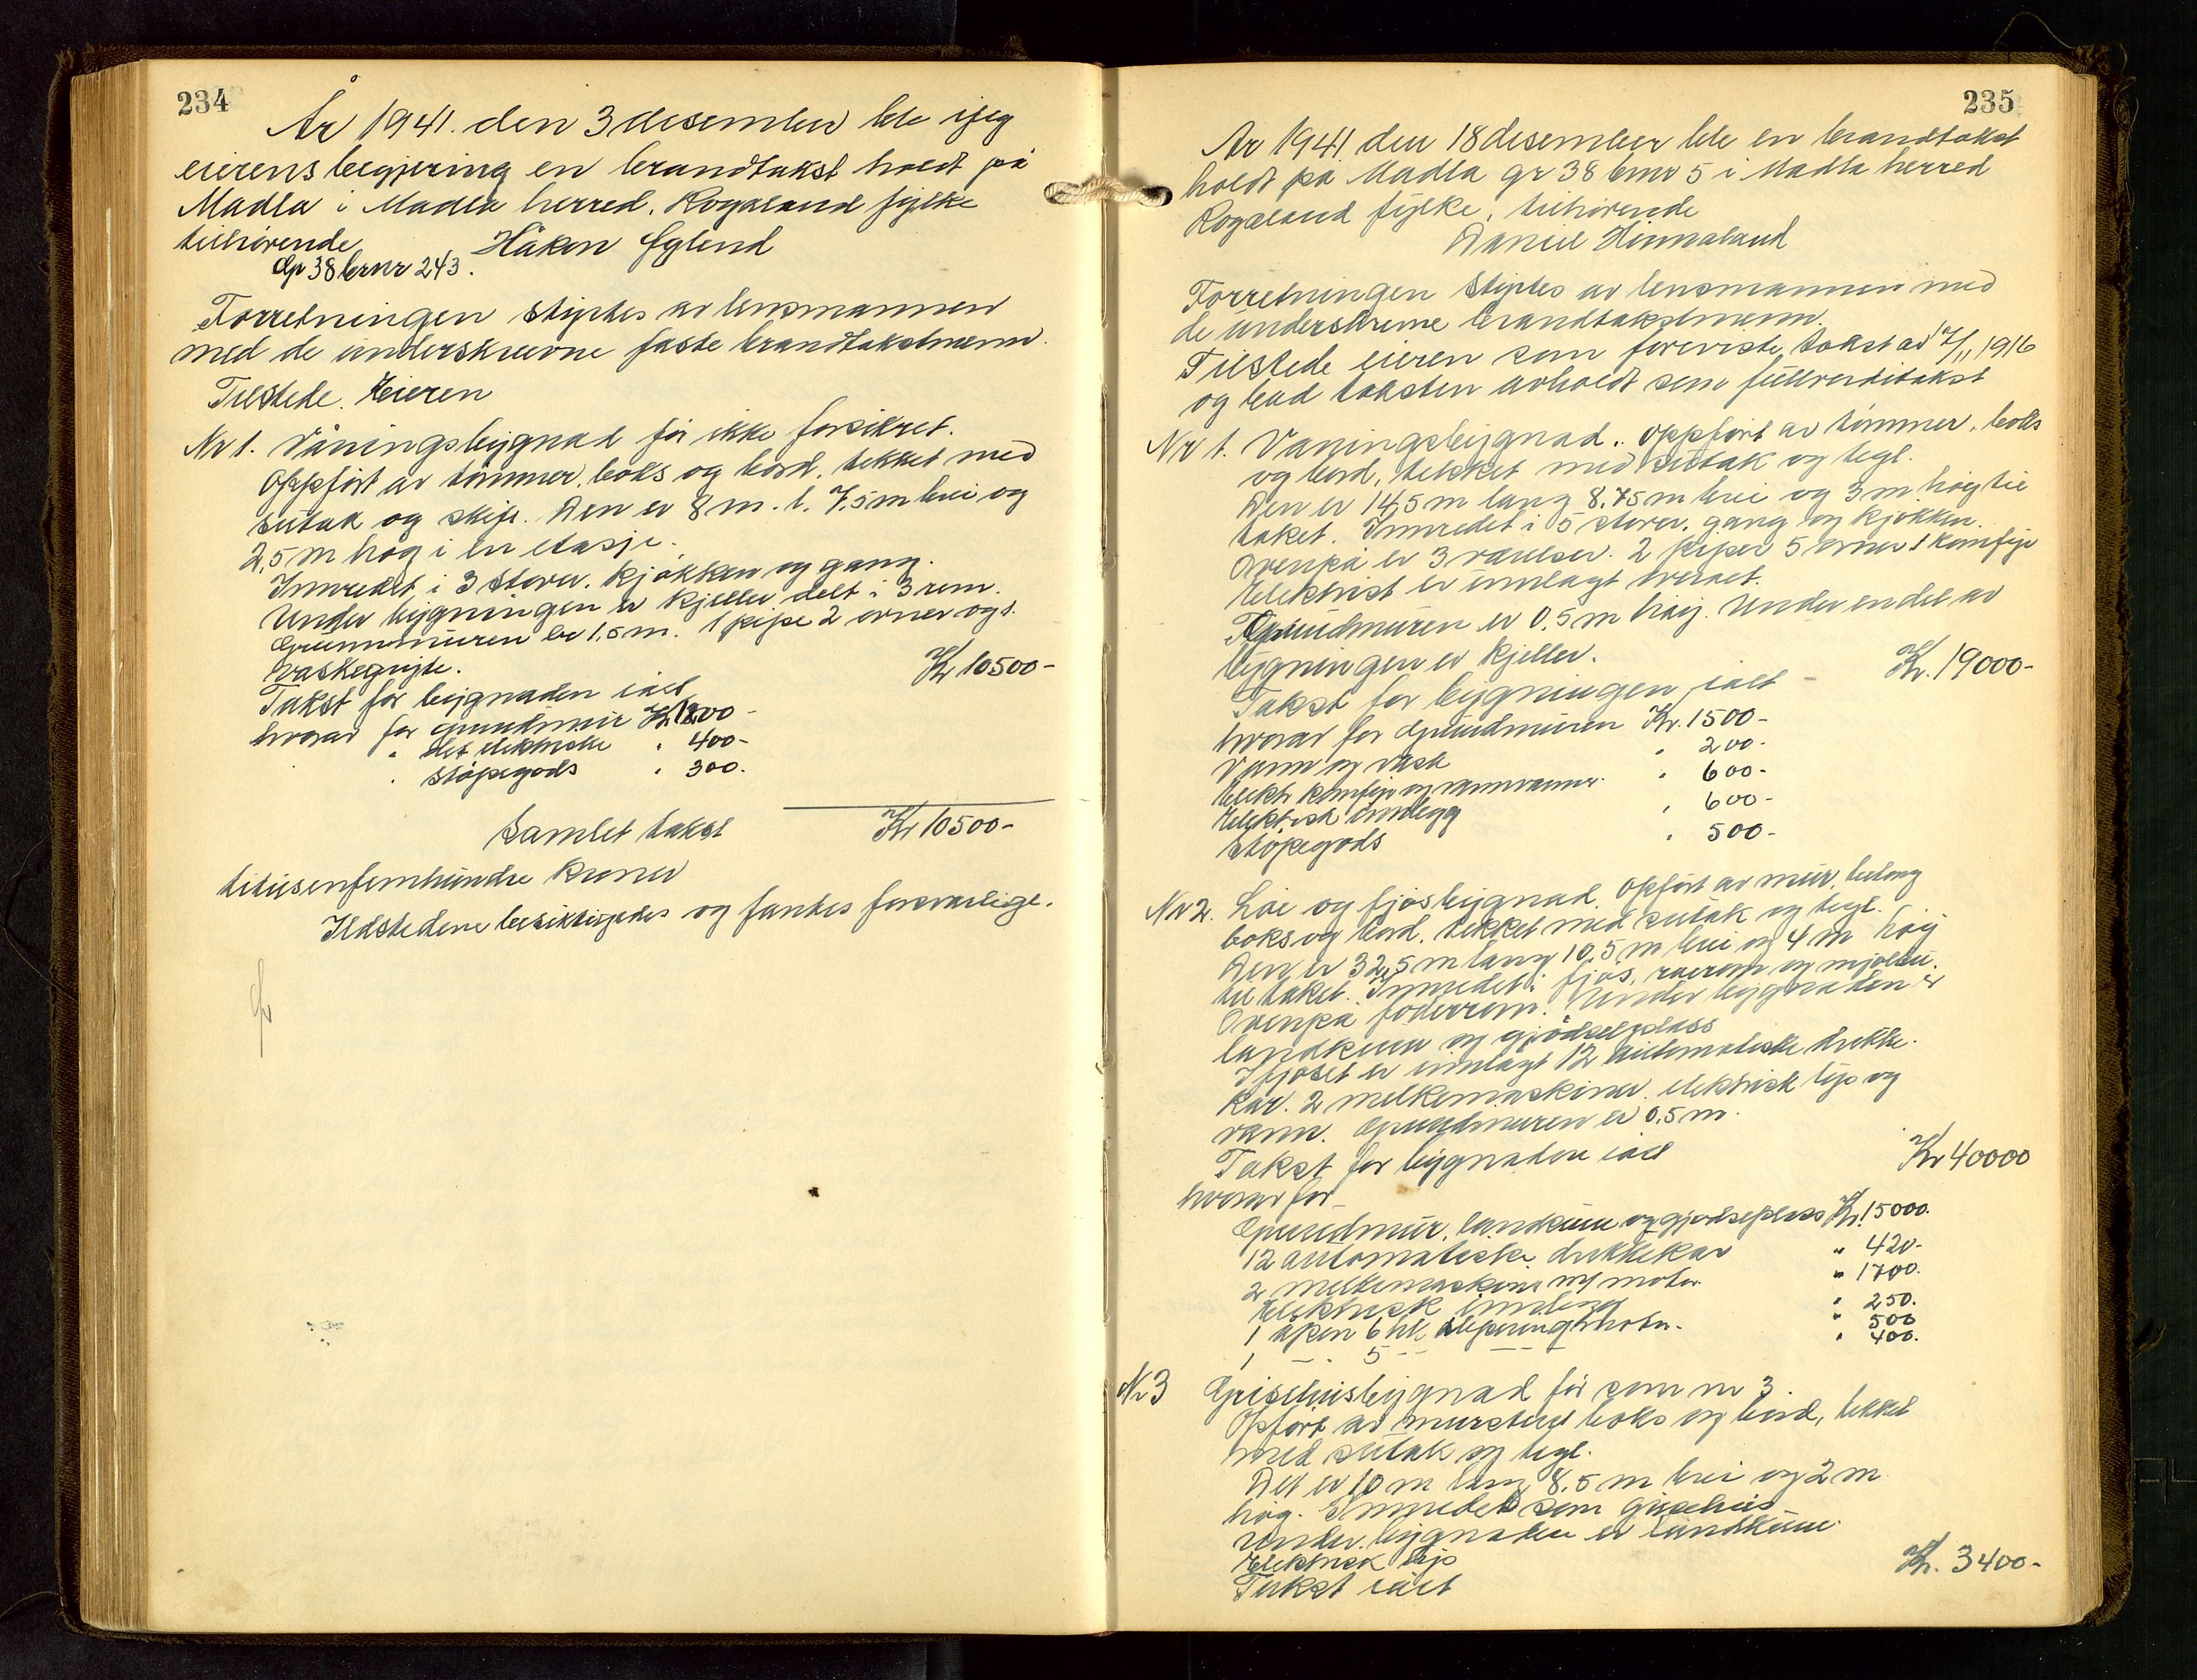 234
År 1941. den 3 desember ble efter
eierens begjering en brandtakst holdt på
Madla i Madla herred. Rogaland fylke
tilhørende Håkon Egland
Gr 38 brnr 243.
Forretningen stiptes av lensmannen
med de underskrevne faste brandtakstmenn.
Tilstede. Eieren
Nr 1. Våningsbygnad før ikke forsikret.
Oppført av tømmer, boks og bord, tekket med
sutak og skifr. Den er 8 m. l. 7,5 m brei og
2,5 m høg i en etasje.
Innredet i 3 stover. kjøkken og gang.
Under bygningen er kjeller delt i 3 rom.
Grunnmuren er 1,5 m. 1 pipe 2 ovner og 1.
vaskegryte.
Takst for bygnaden ialt Kr 10500-
hvorav for grundmur Kr 1200-
" det elektriske " 400-
" støpegods " 300.
Samlet takst Kr 10500-
titusenfemhundre kroner
Ildstedene besiktigedes og fantes forsvarlige.
235
År 1941 den 18 desember ble en brandtakst
holdt på Madla gr 38 brnr 5 i Madla herred
Rogaland fylke, tilhørende
Daniel Hinnaland
Forretningen stiptes av lensmannen med
de underskrevne brandtakstmenn.
Tilstede eieren som foreviste takst av /11 1916
og bad taksten avholdt som fullverditakst
Nr 1. Vaningsbygnad. Oppført av tømmer, boks
og bord, tekket med sutak og tegl.
Den er 14,5 m lang 8.75 m brei og 3 m høg til
taket. Innredet i 5 stover, gang og kjøkken.
Ovenpå er 3 værelser. 2 piper 5 ovner 1 komfyr
Elektrisk er innlagt overalt.
Grundmuren er 0.5 m høg. Under en del av
bygningen er kjeller.
Takst for bygningen ialt - Kr. 19000-
hvorav for Grundmuren Kr. 1500-
Vann og vask " 200.
Elektr komfyr og vannvarmer. " 600-
Elektrisk innlegg " 600-
Støpegods " 500-
Nr 2. Løe og fjøsbygnad. Opført av mur, betong
boks og bord, tekket med sutak og tegl.
Den er 32,5 m lang 10,5 m brei og 4 m høg
til taket. Innredet i fjøs, roerom og mjølbu.
Ovenpå foderrom. Under bygnaden er
landkum og gjødselplass
I fjøset er innlagt 12 automatiske drikke-
kar. 2 melkemaskiner. elektrisk lys og
vann. Grundmuren er 0.5 m.
Takst for bygnaden ialt Kr 40000
hvorav for
Grundmur, landkum og gjødselplass Kr. 15000.
12 automatiske drikkekar " 420-
2 melkemaskiner m/ motor. " 1700.
Elektrisk innlegg " 250.
1 åpen 6 hk. motor. " 500
1 - " 5 - - " 400.
Nr 3 Grisehusbygnad før som nr 3.
Opført av murstein boks og bord, tekket
med sutak og tegl.
Det er 10 m lang 8.5 m brei og 2 m
høg. Innredet som grisehus
Under bygnaden er landkum.
Elektrisk lys
Takst ialt Kr. 3400-